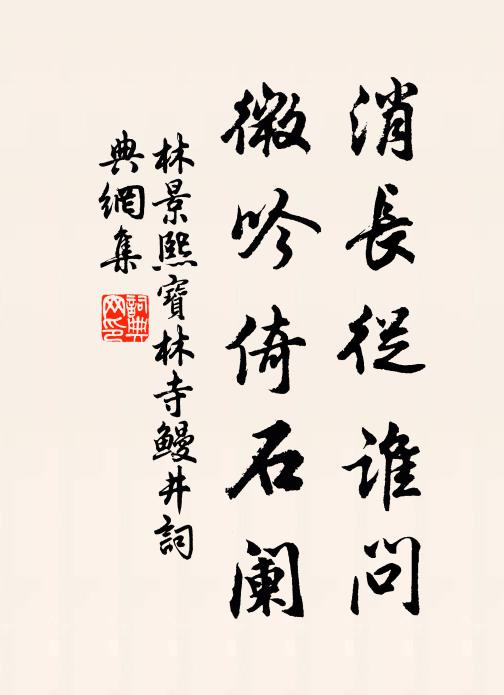 消長從誰問
微吟倚石阑
林景熙寶林寺鰻井詞
典網集
詞典網印